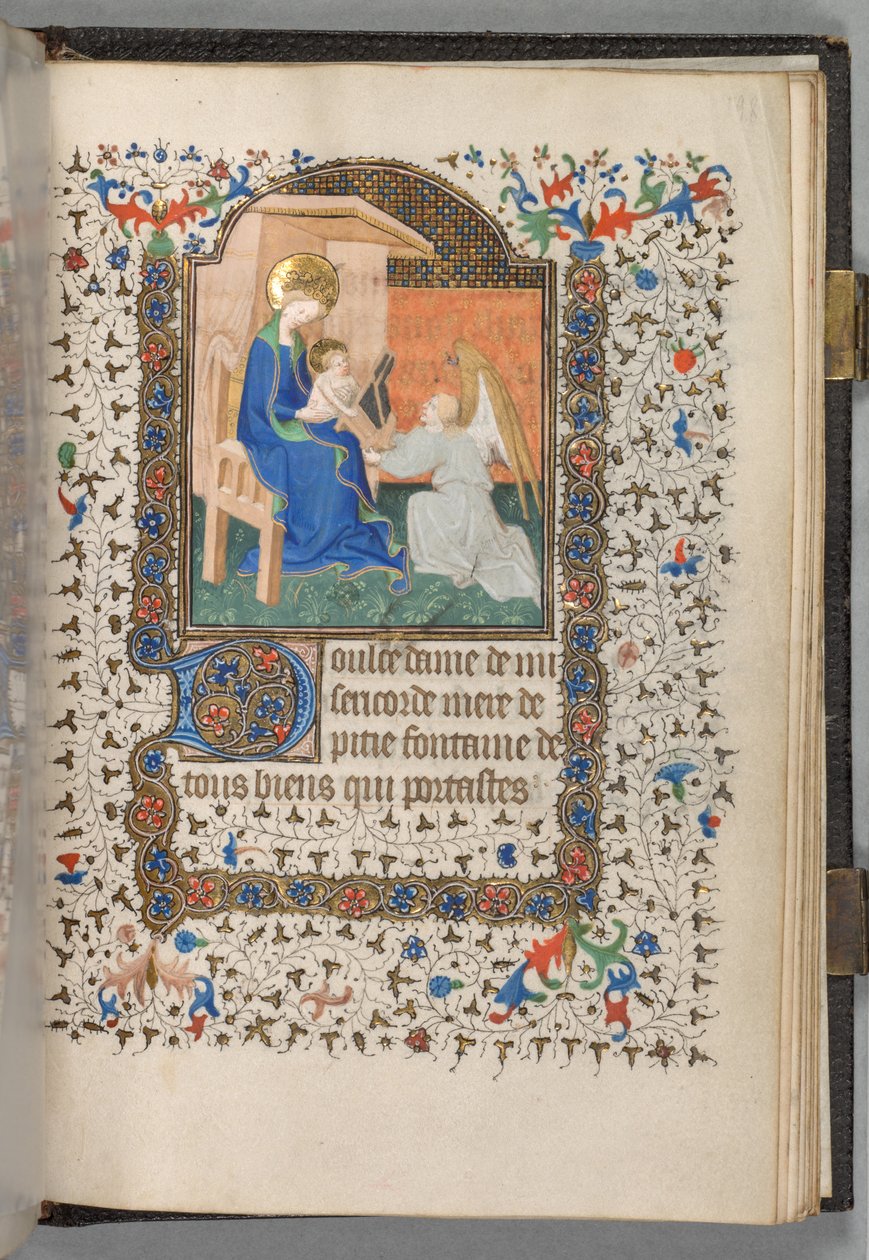 198
Doulce dame de mi
sericorde mere de
pitie fontaine de
tous biens qui portastes